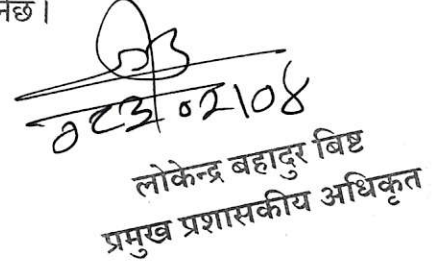 नेछ।
०८३।०२।०४
लोकेन्द्र बहादुर बिष्ट
प्रमुख प्रशासकीय अधिकृत